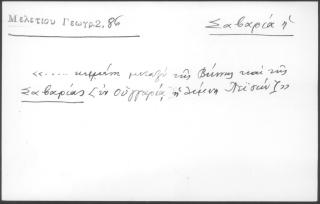 Μελετίου Γεωγρ2,86
Σαβαρία ἡ
«..... κειμένη μεταξύ τῆς Βιέννης καί τῆς
Σαβαρίας (ἐν Οὐγγαρίᾳ ἡ λίμνη Πεϊσών)»